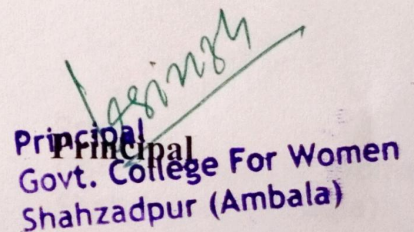 Principal
Principal
Govt. College For Women
Shahzadpur (Ambala)